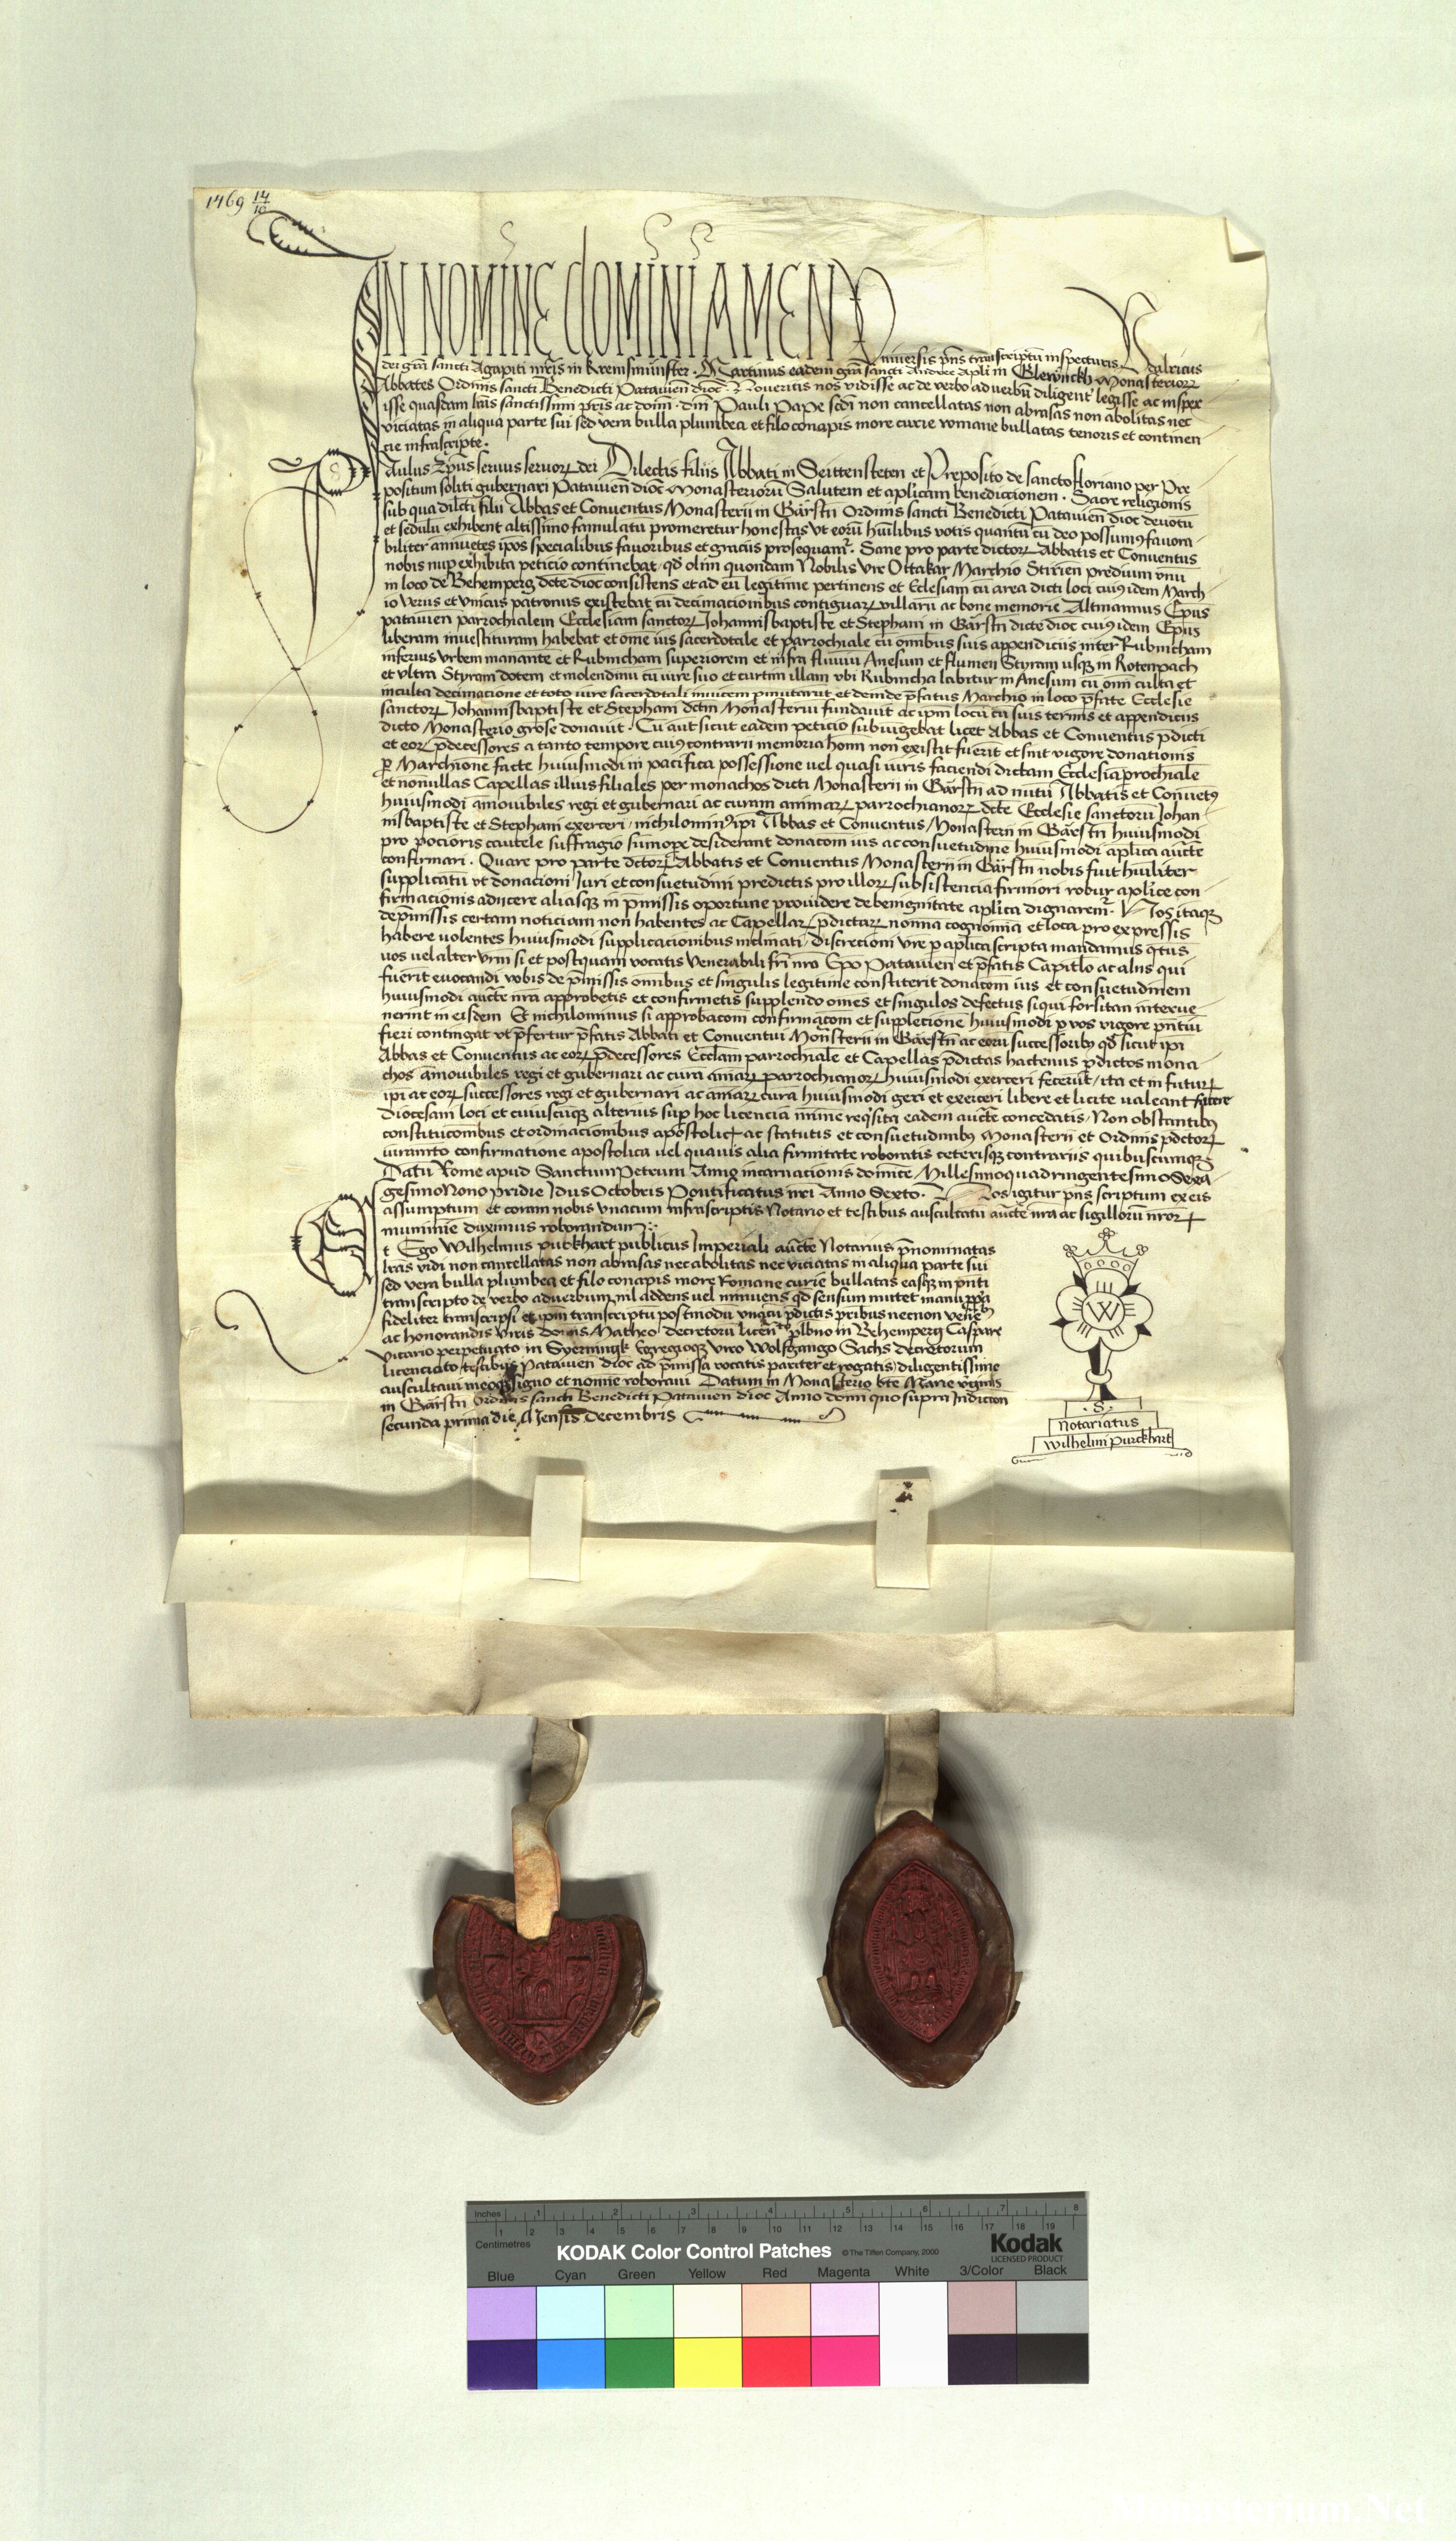 1469 14/10
IN NOMINE dOMINI AMEN
Universis pñs transcriptũ inspecturis Udalricus
dei grã sancti Agapiti mr̃is in Kremsmünster · Martinus eadem grã sancti Andree apli in Glewnckh Monasteriorꝝ
Abbates Ordinis sancti Benedicti Patavieñ dioc̃ · Noveritis nos vidisse ac de verbo ad verbũ diligent legisse ac inspex
isse quasdam lr̃as sanctissimi pr̃is ac dom̃i · dñi Pauli Pape sc̃di non cancellatas non abrasas non abolitas nec
viciatas in aliqua parte sui sed vera bulla plumbea et filo conapis more curie romane bullatas tenoris et continen
cie infrascripte ·
Paulus ep̃us servus servorꝝ dei Dilectis filiis Abbati in Seittensteten et Preposito de sancto floriano per Pre
positum soliti gubernari Patavieñ dioc̃ Monasteriorũ Salutem et aplicam benedictionem · Sacre religionis
sub qua dilecti filii Abbas et Conventus Monasterii in Gärstñ Ordinis sancti Benedicti Patavieñ dioc devotũ
et sedulũ exhibent altissimo famulatũ promeretur honestas ut eorũ hũilibus votis quantũ cũ deo possumꝰ favora-
biliter annuẽtes ip̃os specialibus favoribus et graciis prosequamᷣ. Sane pro parte dictorꝝ Abbatis et Conventus
nobis nup exhibita peticio continebat qđ olim quondam Nobilis vir Ottakar Marchio Stirieñ predium unũ
in loco de Behemperg dc̃te dioc consistens et ad eũ legitime pertinens et Ecclesiam cũ area dicti loci cuiꝰ idem March
io verus et unicus patronus existebat cũ decimacionibus contiguarꝝ villarũ ac bone memorie Altmannus Ep̃us
patavieñ parrochialem Ecclesiam sanctorꝝ Johannisbaptiste et Stephani in Gärstñ dicte dioc cuiꝰ idem Ep̃us
liberam investituram habebat et om̃e ius sacerdotale et parrochiale cũ omnibus suis appendiciis inter Rubincham
inferius urbem manantẽ et Rubincham superiorem et infra fluviũ Anesum et flumen Styram usqꝫ in Rotenpach
et ultra Styram dotem et molendinũ cũ iure suo et curtim illam ubi Rubincha labitur in Anesum cũ om̃i culta et
inculta decimacione et toto iure sacerdotali invicem p̱mutarũt et deinde p̃fatus Marchio in loco p̃fate Ecclesie
sanctorꝝ Johannisbaptiste et Stephani dc̃tm Monasteriũ fundavit ac ip̃m locũ cũ suis term̃is et appendiciis
dicto Monasterio grõse donavit · Cũ aut̃ sicut eadem peticio subiũgebat licet Abbas et Conventus p̃dicti
et eorꝝ p̃decessores a tanto tempore cuiꝰ contrarii memoria hom̃i non existit fuerĩt et sint vigore donationis
p̱ Marchione facte huiusmodi in pacifica possessione vel quasi iuris faciendi dictam Ecclesiã prochialẽ
et nonnullas Capellas illius filiales per monachos dicti Monasterii in Gärstñ ad nutũ Abbatis et Convẽtꝰ
huiusmodi amovibiles regi et gubernari ac curam animarꝝ parrochianorꝝ dc̃te Ecclesie sanctorũ Johan-
nisbaptiste et Stephani exerceri · nichilominꝰ ip̃i Abbas et Conventus Monasterii in Gärstñ huiusmodi
pro pocioris cautele suffragio sum̃ope desiderant donacõm ius ac consuetudinẽ huiusmodi aplica auc̃te
confirmari · Quare pro parte dc̃torꝝ Abbatis et Conventus Monasterii in Gärstñ nobis fuit hũiliter
supplicatũ ut donacioni Juri et consuetudini predictis pro illorꝝ subsistencia firmiori robur aplice con-
firmacionis adiicere aliasqꝫ in p̃missis oportune providere de benignitate aplica dignaremᷣ · Nos itaqꝫ
de p̃missis certam noticiam non habentes ac Capellarꝝ p̃dictarꝝ nomina cognomina et loca pro expressis
habere volentes huiusmodi supplicacionibus inclinati · discretioni vr̃e p̱ aplica scripta mandamus qͣtus
vos vel alter vr̃m si et postquam vocatis Venerabili fr̃i nr̃o Ep̃o Patavieñ et p̃fatis Capitlo ac aliis qui
fuerĩt evocandi vobis de p̃missis omnibus et singulis legitime constiterit donacõm ius et consuetudinem
huiusmodi auc̃te nr̃a approbetis et confirmetis supplendo om̃es et singulos defectus si qui forsitan interve-
nerint in eisdem Et nichilominus si approbacõm confirmacõm et supplecionẽ huiusmodi p̱ vos vigore p̃ntiũ
fieri contingat ut p̃fertur p̃fatis Abbati et Conventui Monasterii in Gärstñ ac eorũ successoribꝰ qđ sicut ip̃i
Abbas et Conventus ac eorꝝ p̃decessores Eccl̃am parrochialẽ et Capellas p̃dictas hactenus p̱ dictos mona-
chos amovibiles regi et gubernari ac curã animarꝝ parrochianorꝝ huiusmodi exerceri fecerũt / ita et in futurꝝ
ip̃i ac eorꝝ successores regi et gubernari ac aniarꝝ curã huiusmodi geri et exerceri libere et licite valeant facere
diocesani loci et cuiuscũqꝫ alterius sup̱ hoc licencia minime req̇sita eadem auc̃te concedatis · Non obstantibꝰ
constitucõnibus et ordinacionibus apostolicꝭ ac statutis et consuetudinibꝰ Monasterii et Ordinis p̃dc̃torꝝ
iuram̃to confirmatione apostolica vel quavis alia firmitate roboratis ceterisqꝫ contrariis quibuscumqꝫ
Datũ Rome apud Sanctum Petrum Anno incarnacionis dominice Millesimoquadringentesimo Sexa-
gesimoNono pridie Idus Octobris Pontificatus nr̃i Anno Sexto · Nos igitur p̃ns scriptum ex eis
assumptum et coram nobis unacum infrascriptis Notario et testibus auscultatũ auc̃te nr̃a ac sigillorũ nr̃orꝝ
munimine duximus roborandum :·
Et Ego Wilhelmus purckhart publicus Imperiali auc̃te Notarius p̃nominatas
lr̃as vidi non cancellatas non abrasas nec abolitas nec viciatas in aliqua parte sui
sed vera bulla plumbea et filo conapis more Romane curie bullatas easqꝫ in p̃nti
transcripto de verbo ad verbum nil addens vel minuens qđ sensum mutet manu pp̃a
fideliter transcripsi et ip̃m transcriptũ postmodũ unacũ p̃dictis pr̃ibus necnon venẽbꝰ
ac honorandis viris dominis Matheo decretorũ licenᵗᵒ plbño in Behemperg Caspare
vicario perpetuato in Syerningk Egregioqꝫ viro Wolfgango Sachs decretorum
licenciato testibus Patavieñ dioc ad p̃missa vocatis pariter et rogatis diligentissime
auscultavi meoqꝫ signo et nomine roboravi Datum in Monasterio bt̃e Marie virginis
in Gärstñ Ordinis sancti Benedicti Patavieñ dioc Anno domi quo supra Indiction
secunda prima die Mensis decembris
W
· S ·
Notariatus
Wilhelmi Purckhart
Inches 1 2 3 4 5 6 7 8
Centimetres 1 2 3 4 5 6 7 8 9 10 11 12 13 14 15 16 17 18 19
KODAK Color Control Patches © The Tiffen Company, 2000 Kodak
LICENSED PRODUCT
Blue Cyan Green Yellow Red Magenta White 3/Color Black
Monasterium.Net